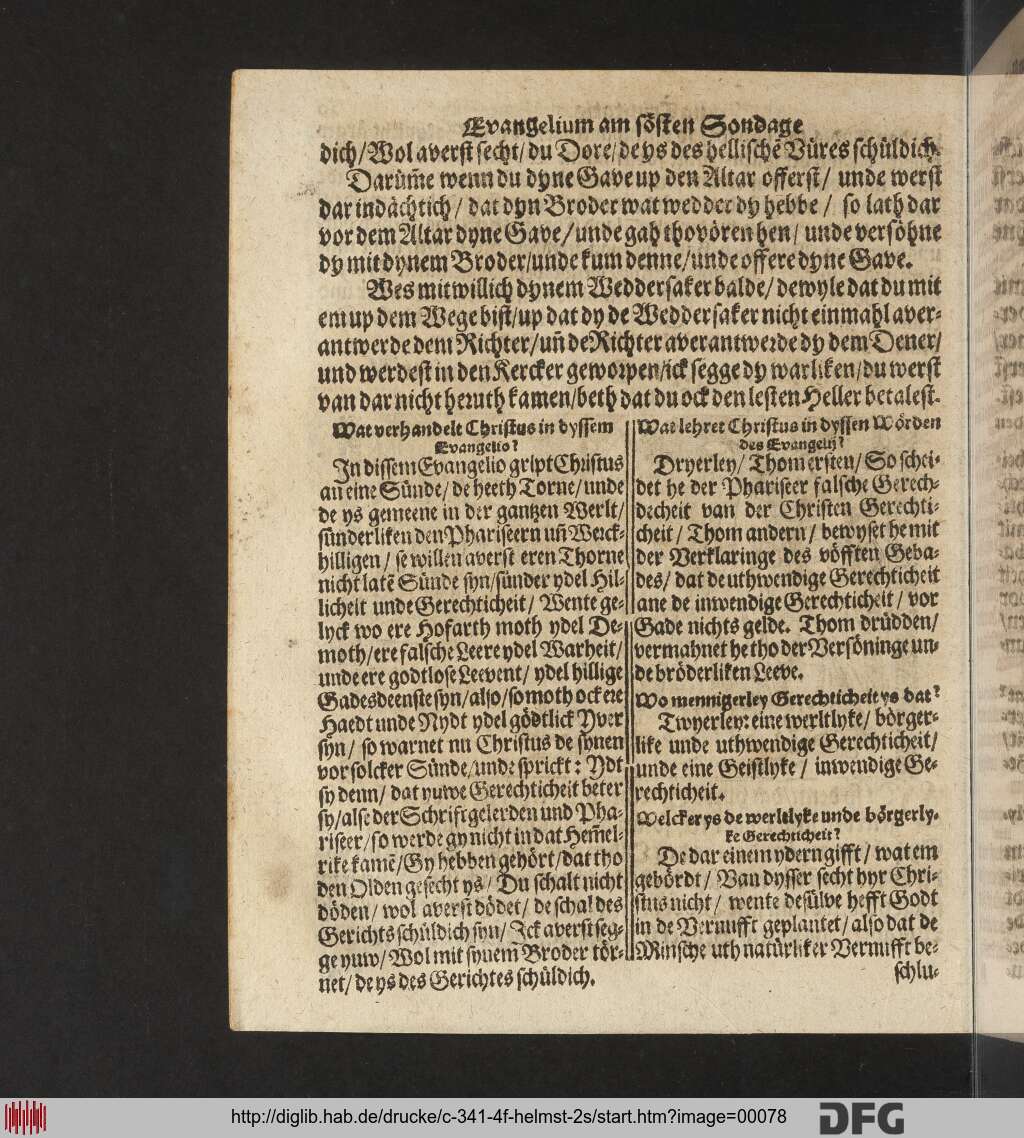 Evangelium am sösten Sondage
dich/Wol averst secht/du Dore/de ys des hellischē Vüres schüldich.
Darüm̄e wenn du dyne Gave up den Altar offerst/ unde werst
dar indächtich/ dat dyn Broder wat wedder dy hebbe/ so lath dar
vor dem Altar dyne Gave/unde gah thovören hen/ unde versöhne
dy mit dynem Broder/unde kum denne/unde offere dyne Gave.
Wes mitwillich dynem Weddersaker balde/ dewyle dat du mit
em up dem Wege bist/up dat dy de Weddersaker nicht einmahl aver-
antwerde dem Richter/un̄ de Richter averantwerde dy dem Dener/
und werdest in den Kercker geworpen/ick segge dy warliken/du werst
van dar nicht heruth kamen/beth dat du ock den lesten Heller betalest.
Wat verhandelt Christus in dyssem
Evangelio?
In dissem Evangelio gript Christus
an eine Sünde/ de heeth Torne/unde
de ys gemeene in der gantzen Werlt/
sünderliken den Phariseern un̄ Werck-
hilligen/ se willen averst eren Thorne
nicht latē Sünde syn/sünder ydel Hil-
licheit unde Gerechticheit/ Wente ge-
lyck wo ere Hofarth moth ydel De-
moth/ere falsche Leere ydel Warheit/
unde ere godtlose Leevent/ ydel hillige
Gadesdeenste syn/also/so moth ock ere
Haedt unde Nydt ydel gödtlick Yver
syn/ so warnet nu Christus de synen
vor solcker Sünde/unde sprickt: Ydt
sy denn/ dat yuwe Gerechticheit beter
sy/alse der Schrifftgelerden und Pha-
riseer/so werde gy nicht in dat Hem̄el-
rike kamē/Gy hebben gehört/dat tho
den Olden gesecht ys/ Du schalt nicht
döden/ wol averst dödet/ de schal des
Gerichts schüldich syn/ Ick averst seg-
ge yuw/ Wol mit synem̄ Broder tör-
net/ de ys des Gerichtes schüldich.
Wat lehret Christus in dyssen Wörden
des Evangelij?
Dryerley/ Thom ersten/ So schei-
det he der Phariseer falsche Gerech-
ticheit van der Christen Gerechti-
cheit/ Thom andern/ bewyset he mit
der Verklaringe des vöfften Geba-
des/ dat de uthwendige Gerechticheit
ane de inwendige Gerechticheit/ vor
Gade nichts gelde. Thom drüdden/
vermahnet he tho der Versöninge un-
de bröderliken Leeve.
Wo mennigerley Gerechticheit ys dat?
Twyerley: eine werltlyke/ börger-
like unde uthwendige Gerechticheit/
unde eine Geistlyke/ inwendige Ge-
rechticheit.
Welcker ys de werltlyke unde börgerly-
ke Gerechticheit?
De dar einem ydern gifft/ wat em
gebördt/ Van dysser secht hyr Chri-
stus nicht/ wente desülve hefft Godt
in de Vernufft geplantet/ also dat de
Minsche uth natürliker Vernufft be-
schlu-
http://diglib.hab.de/drucke/c-341-4f-helmst-2s/start.htm?image=00078
DFG